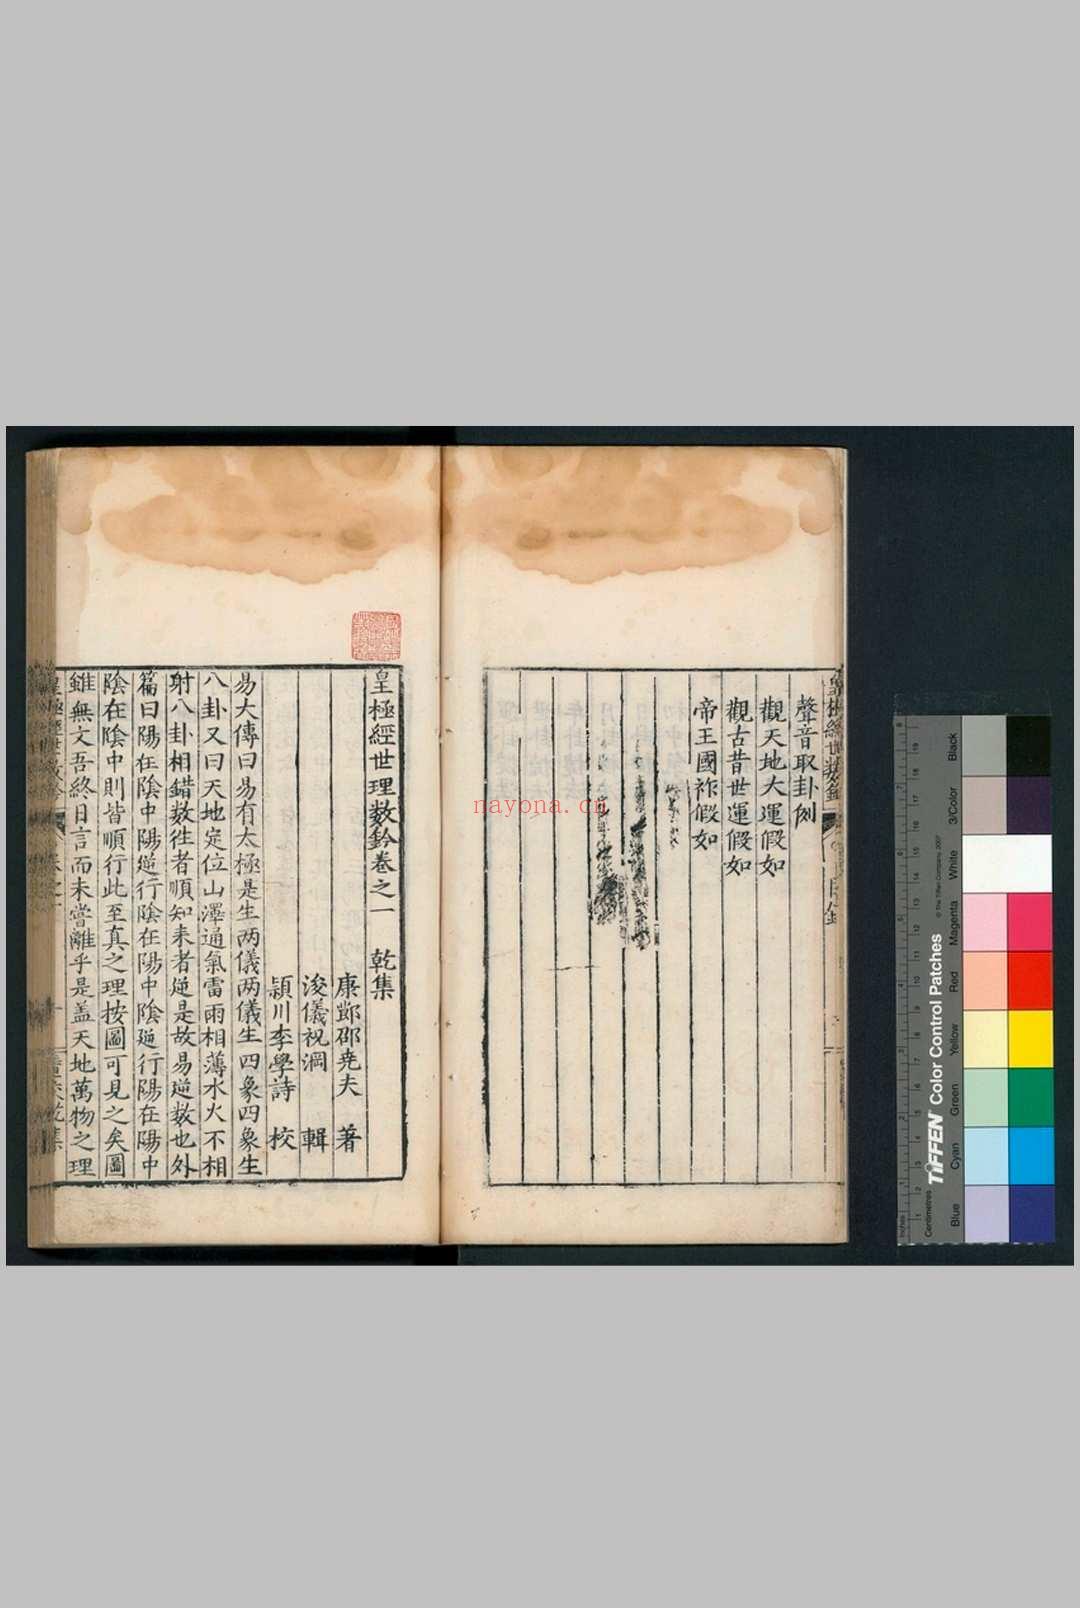 聲音取卦例
觀天地大運假如
觀古昔世運假如
帝王國祚假如
皇極經世理數鈐卷之一　乾集
康節邵堯夫　著
浚儀祝淵　輯
潁川李學詩　校
易大傳曰易有太極是生兩儀兩儀生四象四象生
八卦又曰天地定位山澤通氣雷雨相薄水火不相
射八卦相錯数徃者順知来者逆是故易逆数也外
篇曰陽在陰中陽逆行陰在陽中陰逆行陽在陽中
陰在陰中則皆順行此至真之理按圖可見之矣圖
雖無文吾終日言而未嘗離乎是盖天地萬物之理
nayona.cn
TIFFEN Color Control Patches
© The Tiffen Company, 2007
Inches
Centimetres
Blue
Cyan
Green
Yellow
Red
Magenta
White
3/Color
Black